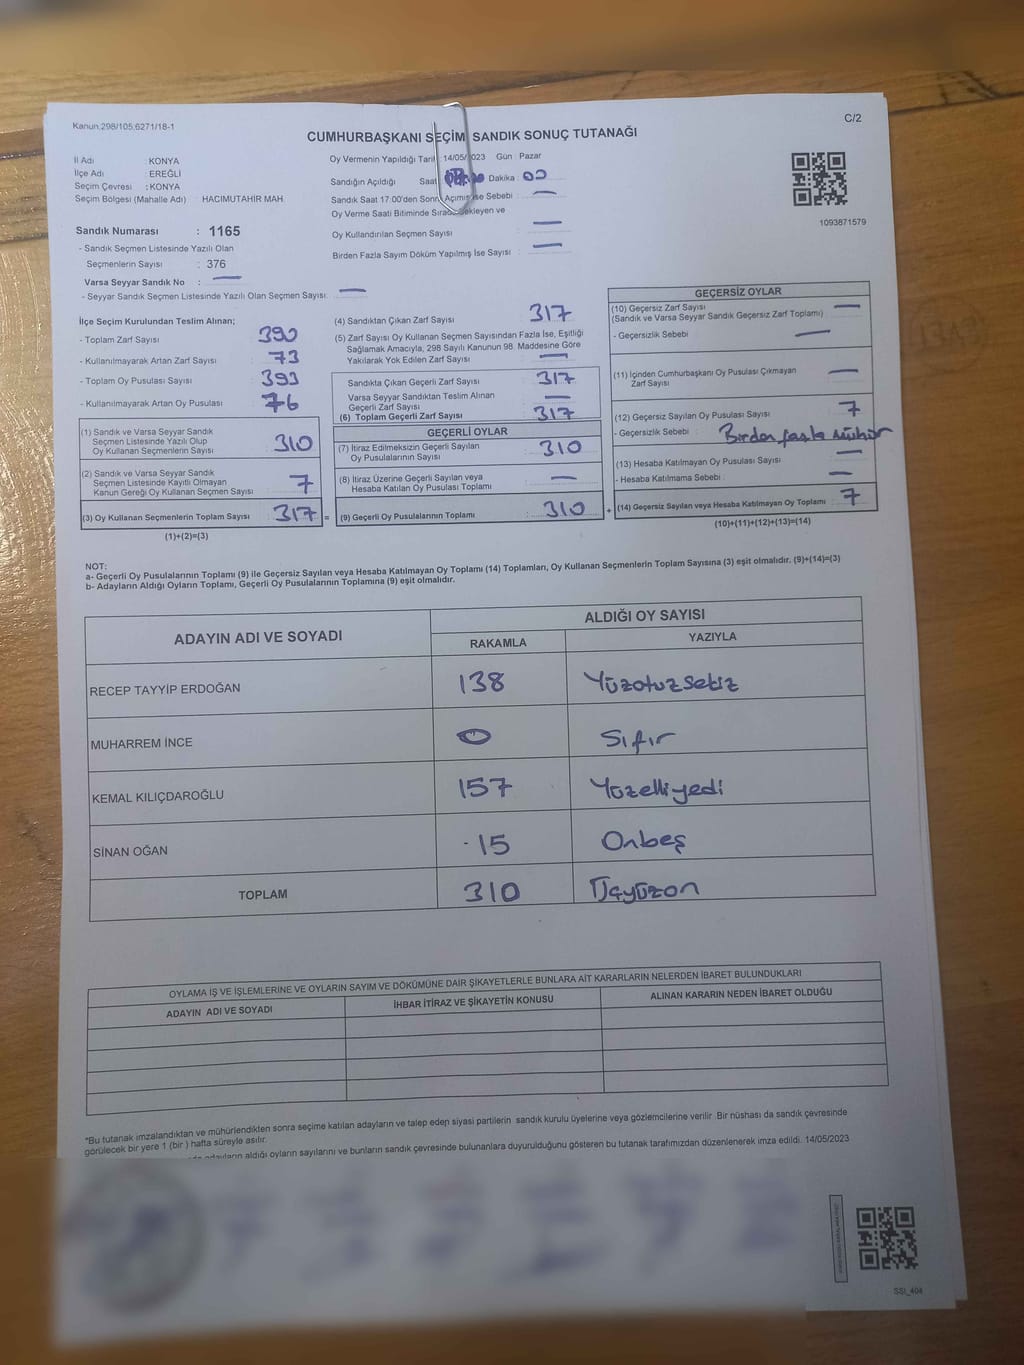 Kanun.298/105;6271/18-1
C/2
CUMHURBAŞKANI SEÇİM SANDIK SONUÇ TUTANAĞI
İl Adı : KONYA
İlçe Adı : EREĞLİ
Seçim Çevresi : KONYA
Seçim Bölgesi (Mahalle Adı) HACIMUTAHİR MAH
Oy Vermenin Yapıldığı Tarih 14/05/2023 Gün : Pazar
Sandığın Açıldığı Saat Dakika : 00
Sandık Saat 17.00'den Sonra Açılmış İse Sebebi : —
Oy Verme Saati Bitiminde Sırada Bekleyen ve
Oy Kullandırılan Seçmen Sayısı : —
Birden Fazla Sayım Döküm Yapılmış İse Sayısı : —
1093871579
Sandık Numarası : 1165
- Sandık Seçmen Listesinde Yazılı Olan
Seçmenlerin Sayısı : 376
Varsa Seyyar Sandık No : —
- Seyyar Sandık Seçmen Listesinde Yazılı Olan Seçmen Sayısı: —
İlçe Seçim Kurulundan Teslim Alınan;
- Toplam Zarf Sayısı 390
- Kullanılmayarak Artan Zarf Sayısı 73
- Toplam Oy Pusulası Sayısı 393
- Kullanılmayarak Artan Oy Pusulası 76
(1) Sandık ve Varsa Seyyar Sandık
Seçmen Listesinde Yazılı Olup
Oy Kullanan Seçmenlerin Sayısı 310
(2) Sandık ve Varsa Seyyar Sandık
Seçmen Listesinde Kayıtlı Olmayan
Kanun Gereği Oy Kullanan Seçmen Sayısı 7
(3) Oy Kullanan Seçmenlerin Toplam Sayısı 317 =
(1)+(2)=(3)
(4) Sandıktan Çıkan Zarf Sayısı 317
(5) Zarf Sayısı Oy Kullanan Seçmen Sayısından Fazla İse, Eşitliği
Sağlamak Amacıyla, 298 Sayılı Kanunun 98. Maddesine Göre
Yakılarak Yok Edilen Zarf Sayısı —
Sandıkta Çıkan Geçerli Zarf Sayısı 317
Varsa Seyyar Sandıktan Teslim Alınan
Geçerli Zarf Sayısı —
(6) Toplam Geçerli Zarf Sayısı 317
GEÇERLİ OYLAR
(7) İtiraz Edilmeksizin Geçerli Sayılan
Oy Pusulalarının Sayısı 310
(8) İtiraz Üzerine Geçerli Sayılan veya
Hesaba Katılan Oy Pusulası Toplamı —
(9) Geçerli Oy Pusulalarının Toplamı 310 +
GEÇERSİZ OYLAR
(10) Geçersiz Zarf Sayısı —
(Sandık ve Varsa Seyyar Sandık Geçersiz Zarf Toplamı)
- Geçersizlik Sebebi : —
(11) İçinden Cumhurbaşkanı Oy Pusulası Çıkmayan
Zarf Sayısı —
(12) Geçersiz Sayılan Oy Pusulası Sayısı 7
- Geçersizlik Sebebi : Birden fazla mühür
(13) Hesaba Katılmayan Oy Pusulası Sayısı —
- Hesaba Katılmama Sebebi : —
(14) Geçersiz Sayılan veya Hesaba Katılmayan Oy Toplamı 7
(10)+(11)+(12)+(13)=(14)
NOT:
a- Geçerli Oy Pusulalarının Toplamı (9) ile Geçersiz Sayılan veya Hesaba Katılmayan Oy Toplamı (14) Toplamları, Oy Kullanan Seçmenlerin Toplam Sayısına (3) eşit olmalıdır. (9)+(14)=(3)
b- Adayların Aldığı Oyların Toplamı, Geçerli Oy Pusulalarının Toplamına (9) eşit olmalıdır.
ADAYIN ADI VE SOYADI ALDIĞI OY SAYISI
RAKAMLA YAZIYLA
RECEP TAYYİP ERDOĞAN 138 Yüzotuzsekiz
MUHARREM İNCE 0 Sıfır
KEMAL KILIÇDAROĞLU 157 Yüzelliyedi
SİNAN OĞAN 15 Onbeş
TOPLAM 310 Üçyüzon
OYLAMA İŞ VE İŞLEMLERİNE VE OYLARIN SAYIM VE DÖKÜMÜNE DAİR ŞİKAYETLERLE BUNLARA AİT KARARLARIN NELERDEN İBARET BULUNDUKLARI
ADAYIN ADI VE SOYADI İHBAR İTİRAZ VE ŞİKAYETİN KONUSU ALINAN KARARIN NEDEN İBARET OLDUĞU
*Bu tutanak imzalandıktan ve mühürlendikten sonra seçime katılan adayların ve talep eden siyasi partilerin sandık kurulu üyelerine veya gözlemcilerine verilir. Bir nüshası da sandık çevresinde
görülecek bir yere 1 (bir) hafta süreyle asılır.
adayların aldığı oyların sayılarını ve bunların sandık çevresinde bulunanlara duyurulduğunu gösteren bu tutanak tarafımızdan düzenlenerek imza edildi. 14/05/2023
SSİ_404